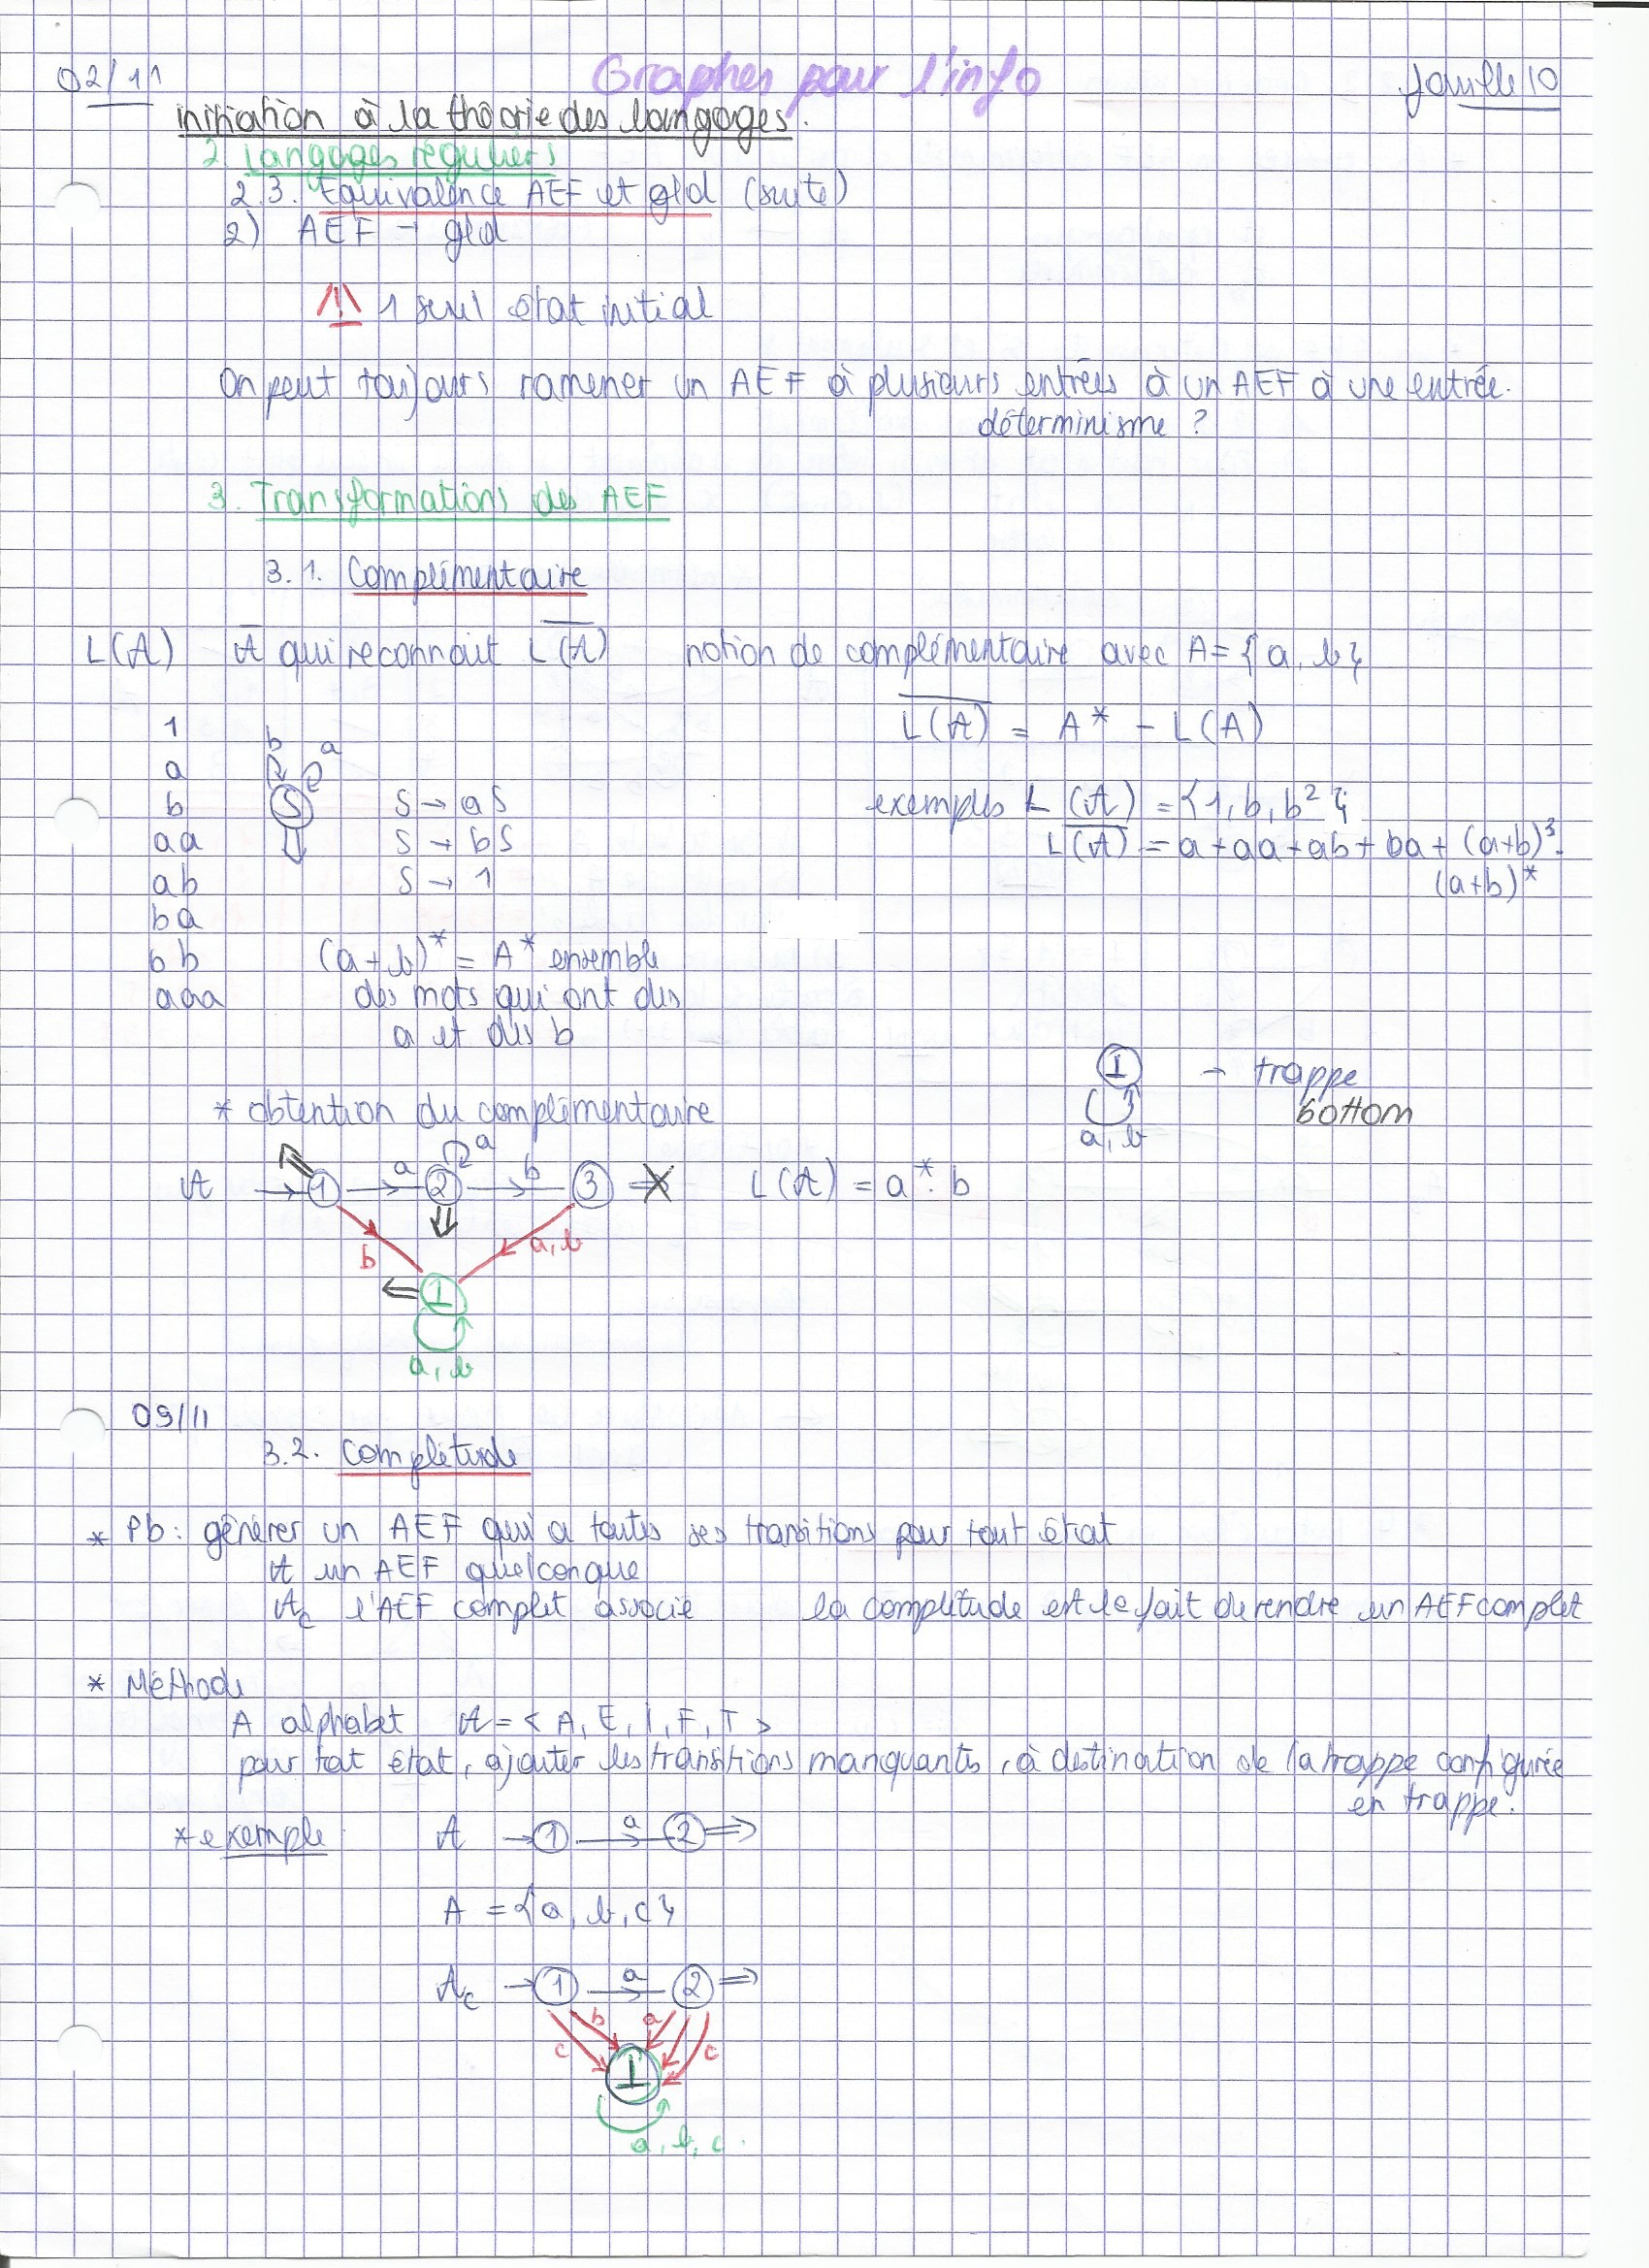 02/11
Graphes pour l'info
feuille 10
initiation à la théorie des langages.
2 Langages réguliers
2.3. Equivalence AEF et gld (suite)
2) AEF → gld
/!\ 1 seul état initial
On peut toujours ramener un AEF à plusieurs entrées à un AEF à une entrée.
déterminisme ?
3. Transformations des AEF
3.1. Complémentaire
L(A) Ā qui reconnait L̅(̅A̅)̅ notion de complémentaire avec A = {a, b}
L̅(̅A̅)̅ = A* - L(A)
1
a
b
aa
ab
ba
bb
aaa
b a
S
S → aS
S → bS
S → 1
exemples L (A) = {1, b, b²}
L̅(̅A̅)̅ = a + aa + ab + ba + (a+b)³.
(a+b)*
(a+b)* = A* ensemble
des mots qui ont des
a et des b
⊥ → trappe
bottom
a, b
* obtention du complémentaire
A → 1 a 2 a b 3 L(A) = a*. b
b a, b
⊥
a, b
09/11
3.2. Complétude
* Pb : générer un AEF qui a toutes ses transitions pour tout état
A un AEF quelconque
Ac l'AEF complet associé la complétude est le fait de rendre un AEF complet
* Méthode
A alphabet A = < A, E, I, F, T >
pour tat état, ajouter les transitions manquantes, à destination de la trappe configurée
en trappe.
* exemple A → 1 a 2 ⇒
A = {a, b, c}
Ac → 1 a 2 ⇒
b a
c c
⊥
a, b, c.